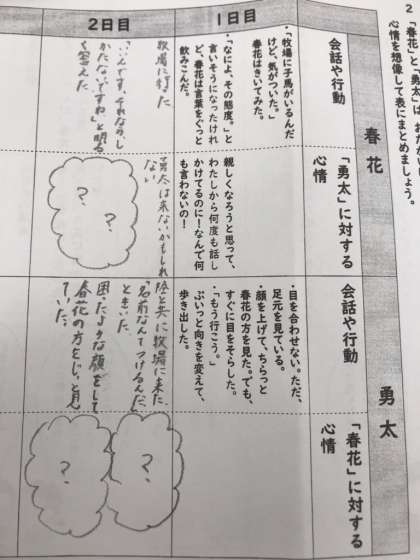 2「春花」と「勇太」は、おたがい
心情を想像して表にまとめましょう。
春花
勇太
会話や行動
「勇太」に対する
心情
会話や行動
「春花」に対する
心情
1日目
・「牧場に子馬がいるんだ
けど、気がついた。」
春花はきいてみた。
・「なによ、その態度。」と
言いそうになったけれ
ど、春花は言葉をぐっと
飲みこんだ。
親しくなろうと思って、
わたしから何度も話し
かけてるのに！なんで何
も言わないの！
・目を合わせない。ただ、
足元を見ている。
・顔を上げて、ちらっと
春花の方を見た。でも、
すぐに目をそらした。
・「もう行こう。」
ぷいっと向きを変えて、
歩き出した。
2日目
牧場に行った
「いんです。それなら、し
かたないですね」と明る
く答えた。
勇太は来ないかもしれ
ない
?
?
陸と共に牧場に来た
「名前なんてつけるんだ」
ときいた
困ったような顔をして
春花の方をじっと見
ていた。
?
?